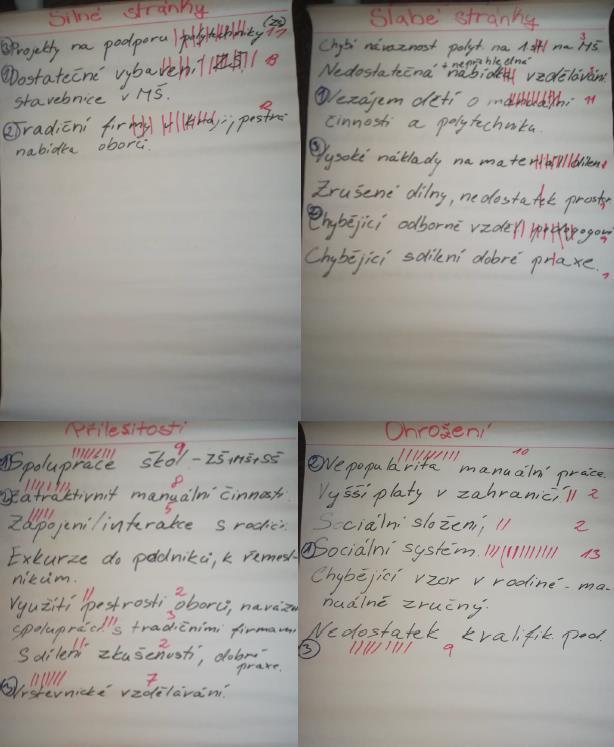 Silné stránky
③ Projekty na podporu polytechniky (ZŠ) 11
① Dostatečné vybavení ZŠ. 13
stavebnice v MŠ.
② Tradiční firmy v kraji, pestrá
nabídka oborů.
Slabé stránky
Chybí návaznost polyt. na 1.st na MŠ. 3
+ nepřehledná
Nedostatečná nabídka vzdělávání.
① Nezájem dětí o manuální 11
činnosti a polytechniku.
③ Vysoké náklady na materiál
Zrušené dílny, nedostatek prostor
② Chybějící odborné vzděl.
Chybějící sdílení dobré praxe. 1
Příležitosti
① Spolupráce škol - ZŠ+MŠ+SŠ 9
② Zatraktivnit manuální činnosti. 8
Zapojení/interakce s rodiči. 5
Exkurze do podniků, k řemesl-
níkům.
Využití pestrosti oborů, 2
spolupráci s tradičními firmami 3
Sdílení zkušeností, dobré 2
praxe.
③ Vrstevnické vzdělávání. 7
Ohrožení
② Nepopularita manuální práce. 10
Vyšší platy v zahraničí 2
Sociální složení, 2
① Sociální systém. 13
Chybějící vzor v rodině - ma-
nuálně zručný.
Nedostatek kvalifik. ped.
③ 9